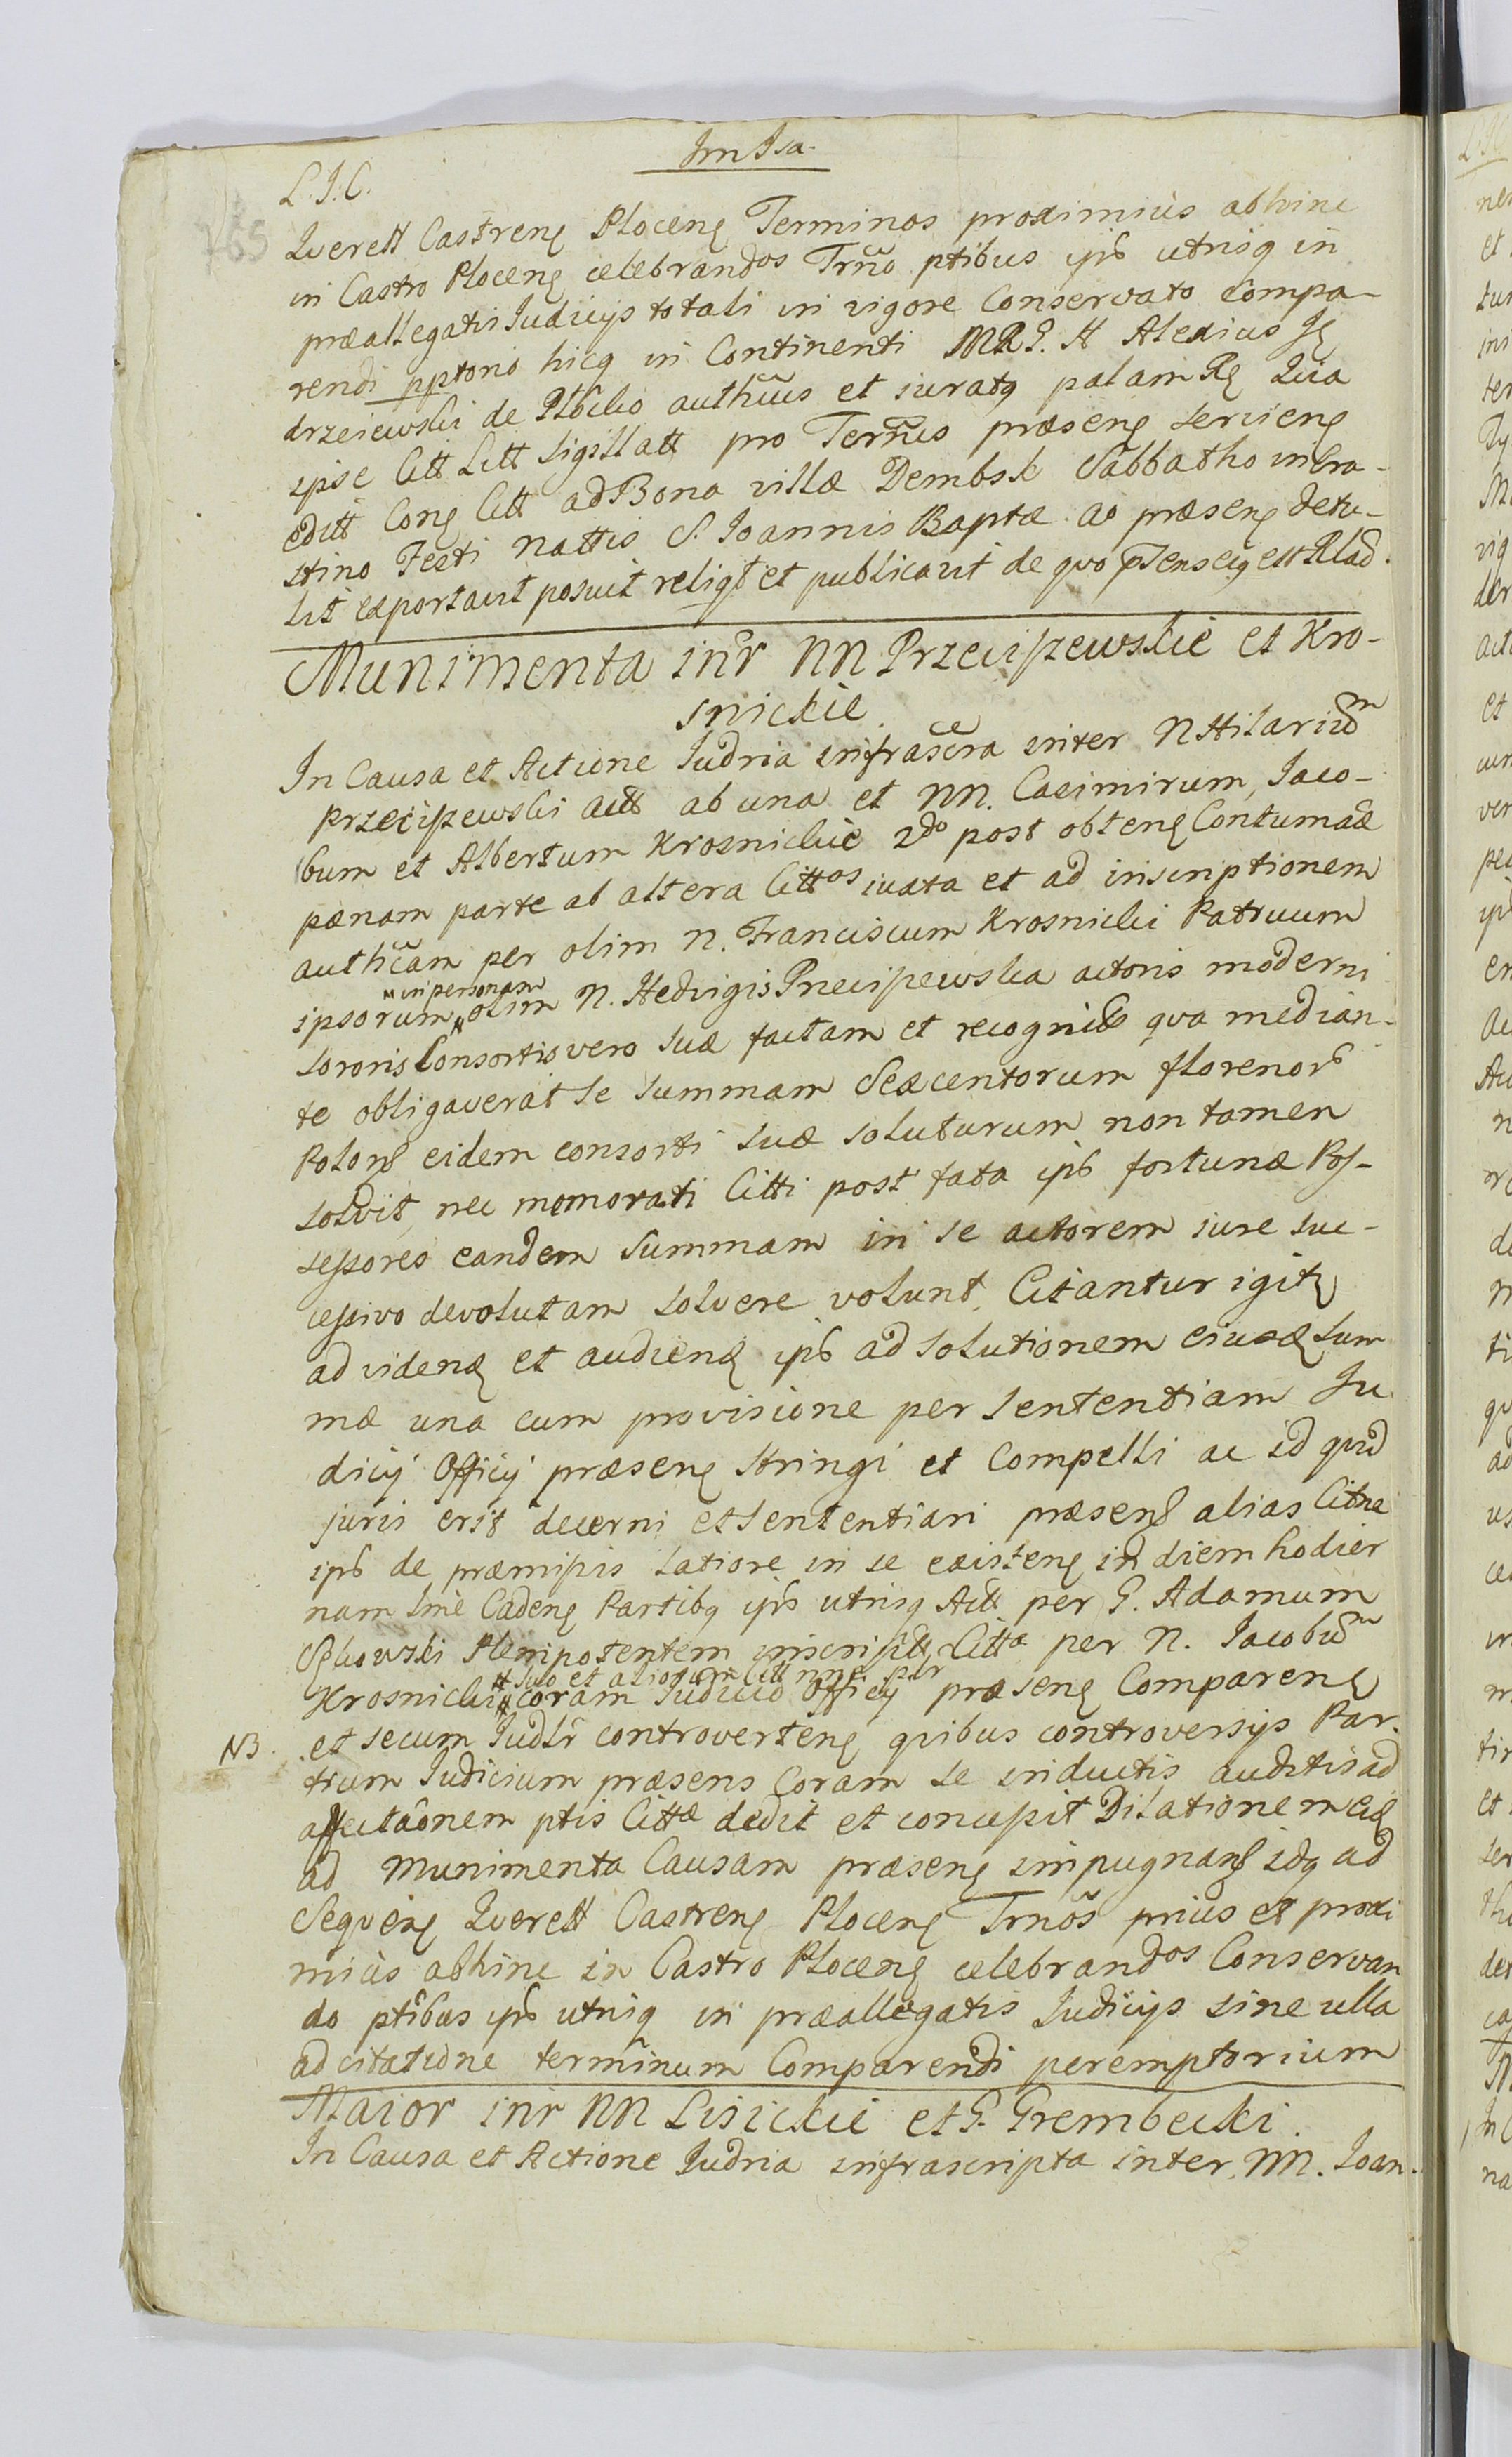 L. J. C.
765
Querell Castreng Ploceng Terminos proximius abhinc
in Castro Ploceng celebrandos Trño ptibus ipis utrisq in
præallegatis Judicijs totali in vigore Conservato Compa-
rendi pptorio hicq in Continenti MRJ. H Alexius Ję
drzeiewski de authcus et iuratq palam Rg Quia
ipse Citt Litt Sigillatt pro Ternis præseng servieng
editt Cong Citt ad Bona villæ Dembsk Sabbatho in Cra-
stino Festi Nattis S. Joannis Baptæ ao præseng detu-
lit exportavit posuit reliqt et publicavit de quo est Rlad.
Munimenta inr NN Przeciszewskie et Kro-
snickie.
In Causa et Actione Judria infrascra inter N Hilariũm
Przeciszewski act ab una et NN. Casimirum, Jaco-
bum et Albertum Krosnickie 2do post obteng Contumaciæ
pænam parte ab altera Cittos iuxta et ad inscriptionem
authcam per olim N. Franciscum Krosnicki Patruum
in personam
ipsorum olim N. Hedvigis Przeciszewska actoris moderni
sororis Consortis vero suæ factam et recognit qva median-
te obligaverat se summam Sexcentorum florenors
Polong eidem consorti suæ soluturum non tamen
solvit, nec memorati Citti post fata ipis fortunæ Pos-
sessores eandem Summam in se actorem iure suc-
cessivo devolutam solvere volunt. Citantur igitr
ad videng et audieng ipis ad solutionem eiusdę Sum
mæ una cum provisione per Sententiam Ju
dicij Officij præseng stringi et Compelli ac id quid
juris erit decerni et sententiari præseng alias Citne
ipis de præmissis latiore in se existeng in diem hodier
nam sine Cadeng Partibq ipis utrisq Act per G. Adamum
Plenipotentem inscript Citta per N. Jacobũm
suo et aliorum Citt nne per
Krosnicki coram Judicio Officij præseng Compareng
NB.
et secum Judlr controverteng quibus controversijs Par-
tium Judicium præsens Coram se inductis auditis ad
affectaõnem ptis Cittæ dedit et concessit Dilationem eidę
ad Munimenta Causam præseng impugnang idq ad
Seqveng Querell Castreng Ploceng Trños prius et proxi
mius abhinc in Castro Ploceng celebrandos Conservan
do ptibus ipis utrisq in præallegatis Judicijs sine ulla
adcitatione terminum Comparendi peremptorium
Maior inr NN Lisickie et G. Grembecki.
In Causa et Actione Judria infrascripta inter NN. Joan-